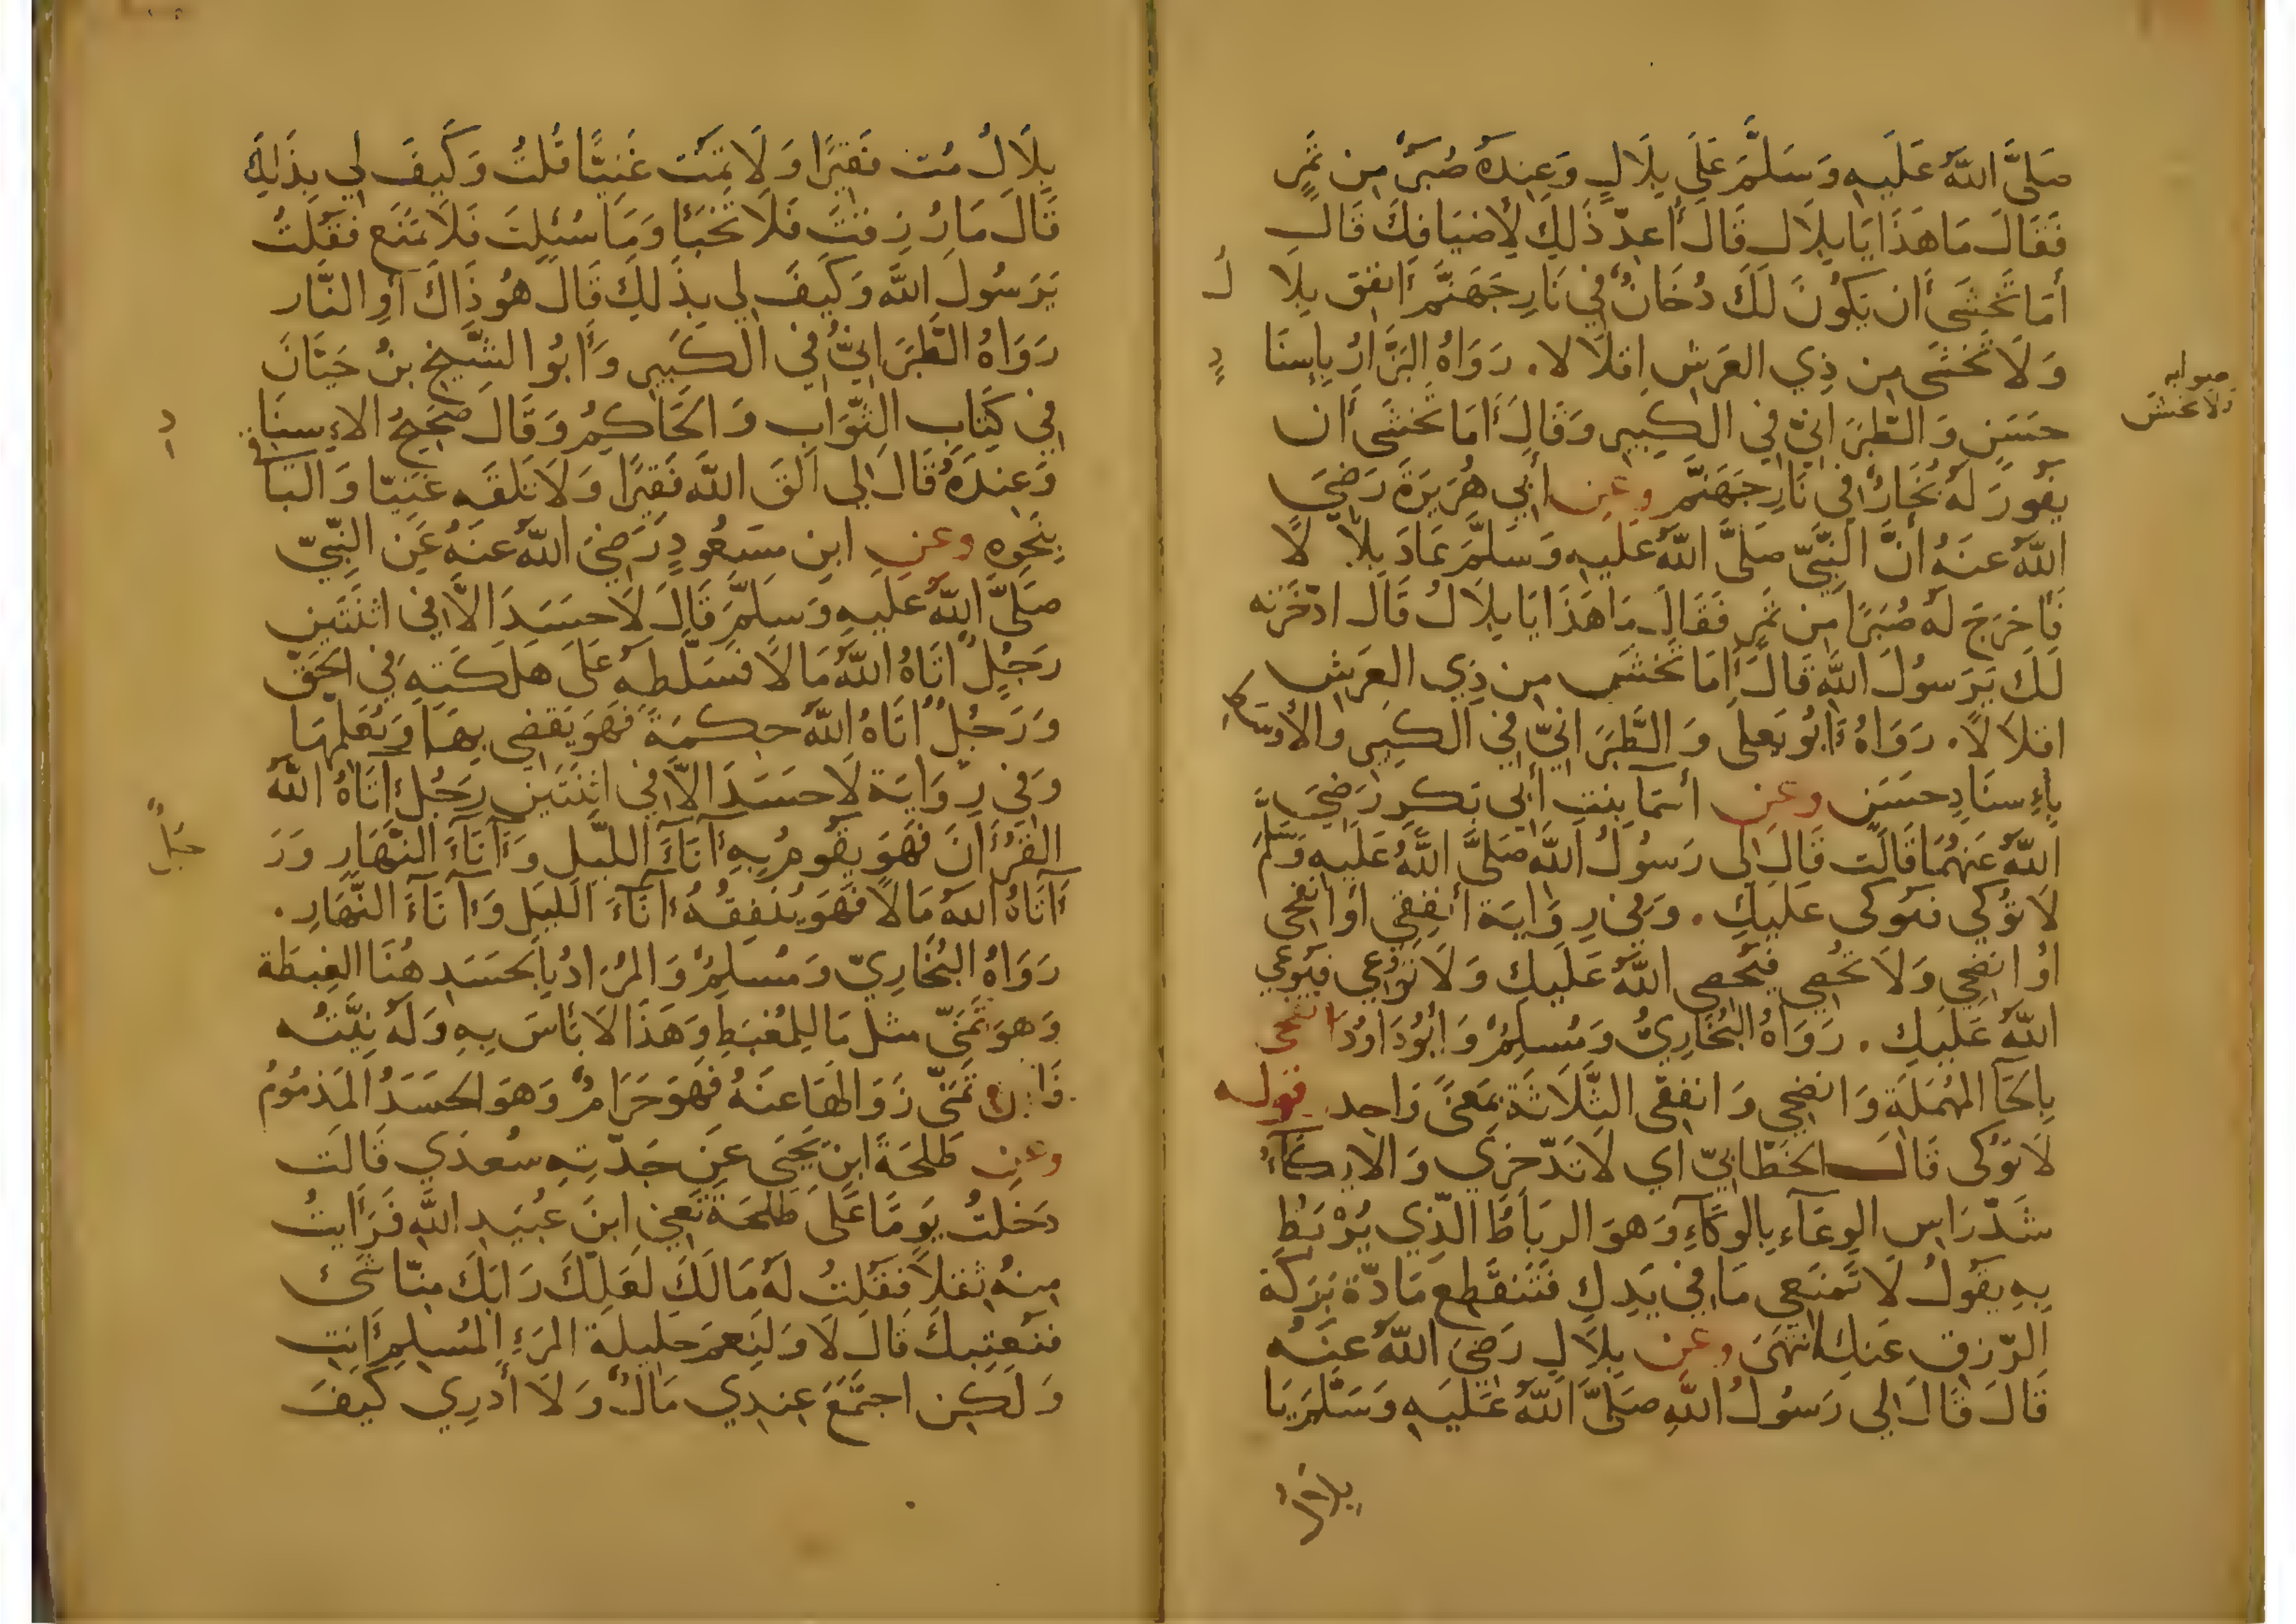 صَلَّى اللَّهُ عَلَيهِ وَسَلَّمَ عَلَى بِلَالٍ وَعِندَهُ صُبَرٌ مِن تَمرٍ
فَقَالَ مَا هَذَا يَا بِلَال قَالَ أُعِدّ ذَلِكَ لِأَضيَافِكَ قَالَ
أَمَا تَخشَى أَن يَكُونَ لَكَ دُخَانٌ فِي نَارِ جَهَنَّمَ أَنفِق بِلَا لُ
وَلَا تَخشَى مِن ذِي العَرشِ إِقلَالا. رَوَاهُ البَزَّارُ بِإِسنَا دٍ
صوابه
ولا تخش
حَسَنٍ وَالطَّبَرَانِيّ فِي الكَبِيرِ وَقَالَ أَمَا تَخشَى أَن
يَفُورَ لَهُ بُخَارٌ فِي نَارِ جَهَنَّم وعن أَبِي هُرَيرَةَ رَضِيَ
اللَّهُ عَنهُ أَنَّ النَّبِيَّ صَلَّى اللَّهُ عَلَيهِ وَسَلَّمَ عَادَ بِلَا لًا
فَأَخرَجَ لَهُ صُبَرًا مِن تَمرٍ فَقَالَ مَا هَذَا يَا بِلَالُ قَالَ ادّخَرتُه
لَكَ يَرَسُولَ اللَّهِ قَالَ أَمَا تَخشَى مِن ذِي العَرشِ
إقلَالًا. رَوَاهُ أَبُو يَعلَى وَالطَّبَرَانِيّ فِي الكَبِيرِ وَالأَوسَط
بِإِسنَادٍ حَسَنٍ وعن أَسمَا بِنتِ أَبِي بَكرٍ رَضِيَ
اللَّهُ عَنهُمَا قَالَت قَالَ لِي رَسُولُ اللَّه صَلَّى اللَّهُ عَلَيهِ وَسَلَّمَ
لَا تُوكِي فَيُوكَى عَلَيكِ. وَفِي رِوَايَة أَنفِقِي أَو انفحِي
أَو انضحِي وَلَا تُحصِي فَيُحصِي اللَّهُ عَلَيكِ وَلَا تُوعِي فَيُوعِي
اللَّهُ عَلَيكِ. رَوَاهُ البُخَارِيُّ وَمُسلِمٌ وَأَبُودَاوُدَ انفحي
بِالحَآ المُهمَلَةِ وَانضحِي وَانفقِي الثَّلَاثَة بِمَعنًى وَاحِد قوله
لَا تُوكِى قَالَ الخَطَّابِيّ اي لَا تَدّخِرِي وَالايكَآءُ
شَدّ رَاسِ الوِعَآءِ بِالوِكَآءِ وَهوَ الرِبَاطُ الَّذِي يُرْبَطُ
بِهِ يَقُولُ لَا تَمنَعِي مَا فِي يَدِكِ فَتَنقَطِع مَادّة بَرَكَة
الرّزقِ عَنكِ انتَهَى وعن بِلَالٍ رَضِيَ اللَّهُ عَنهُ
قَالَ قَالَ لِي رَسُولُ اللَّهِ صَلَّى اللَّهُ عَلَيهِ وَسَلَّمَ يَا
بلال
بِلَالُ مُت فَقِيرًا وَلَا تَمُت غَنِيًّا قُلتُ وَكَيفَ لِي بِذَلِكَ
قَالَ مَا رُزِقتَ فَلَا تَخبَأ وَمَا سُئِلتَ فَلَا تَمنَع فَقُلتُ
يَرَسُولَ اللَّه وَكَيفَ لِي بِذَلِكَ قَالَ هُوَ ذَاكَ أَوِ النَّار
رَوَاهُ الطَّبَرَانِيُّ فِي الكَبِيرِ وَأَبُو الشَّيخِ بنُ حَيَّانَ
فِي كِتَابِ الثَّوَابِ وَالحَاكِمُ وَقَالَ صَحِيحُ الإِسنَا دِ
وَعِندَهُ قَالَ لِي القَ اللَّهَ فَقِيرًا وَلَا تَلقَه غَنِيّا وَالبَا في
بِنَحوِهِ وعن ابنِ مَسعُودٍ رَضِيَ اللَّهُ عَنهُ عَنِ النَّبِيّ
صَلَّى اللَّهُ عَلَيهِ وَسَلَّمَ قَالَ لَا حَسَدَ الَّا فِي اثنَتَينِ
رَجُلٌ اتَاهُ اللَّهُ مَالًا فَسَلَّطَهُ عَلَى هَلَكَتِهِ فِي الحَقّ
وَرَجُلٌ اتَاهُ اللَّهُ حِكمَةً فَهوَ يَقضِي بِهَا وَيُعَلِّمُهَا
وَفِي رِوَايَة لَا حَسَدَ الَّا فِي اثنَتَينِ رَجُلٌ آتَاهُ اللَّهُ
القُرْآنَ فَهوَ يَقُومُ بِهِ آنَآءَ اللَّيلِ وَآنَآءَ النَّهَارِ وَرَ جُلٌ
آتَاهُ اللَّهُ مَالًا فَهوَ يُنفِقُهُ آنَآءَ اللَّيلِ وَآنَآءَ النَّهَارِ.
رَوَاهُ البُخَارِيّ وَمُسلِمٌ وَالمُرَادُ بِالحَسَدِ هُنَا الغِبطَة
وَهوَ تَمَنِّي مِثلِ مَا لِلمُغبَطِ وَهَذَا لَا بَأسَ بِهِ وَلَهُ نِيَّتُه
فَإن تَمَنّى زَوَالهَا عَنهُ فَهوَ حَرَامٌ وَهوَ الحَسَدُ المَذمُومُ
وعن طَلحَةَ ابنِ يَحيَى عَن جَدّتِهِ سُعدَي قَالَت
دَخَلتُ يَومًا عَلَى طَلحَةَ تَعنِي ابنَ عُبَيدِ اللَّهِ فَرَأَيتُ
مِنهُ ثقلًا فَقُلتُ لَهُ مَا لَكَ لَعَلَّكَ رَابَكَ مِنّا شَيء
فَنُعتِبَكَ قَالَ لَا وَلَنِعمَ حَلِيلَة المَرءِ المُسلِمِ أَنتِ
وَلَكِن اجتَمَعَ عِندِي مَالٌ وَلَا أَدرِي كَيفَ